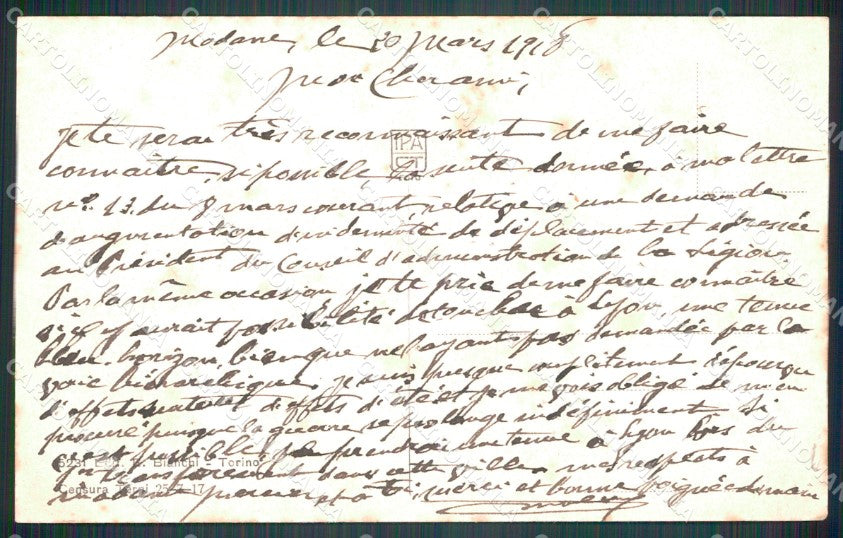 Modane, le 20 Mars 1918
Mon
Je te serai très reconnaissant de me faire
connaître, si possible, la suite donnée, à ma lettre
n° 13 du 8 mars courant relative à une demande
d'augmentation d'indemnité de déplacement et adressée
au Président du Conseil d'administration de la Légion.
Par la même occasion je te prie de me faire connaître
s'il y aurait possibilité de toucher à Lyon, une tenue
bleu-horizon, bien que ne l'ayant pas demandée par la
voie hiérarchique. Je suis presque complètement dépourvu
d'effets d'effets d'été et je me vois obligé de m'en
procurer puisque la guerre se prolonge indéfiniment. Si
c'est possible, je prendrai une tenue à Lyon lors du
dans cette ville. mes respects à
merci et bonne poignée de main
IPA
CT
5231 Ed. Bianchi - Torino
Censura Torino 25 - 17
CARTOLINOMANIA